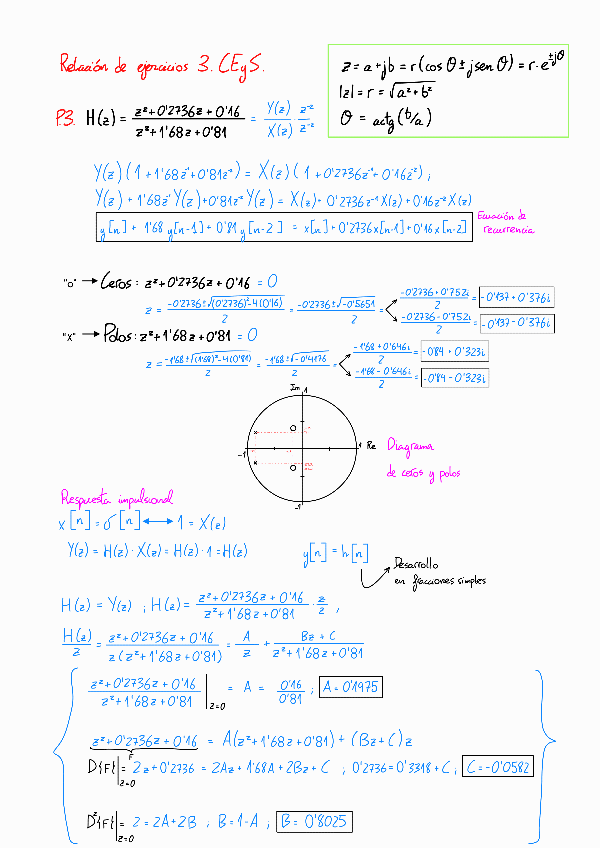 Relación de ejercicios 3. CEyS.
z = a + jb = r(cos θ ± j sen θ) = r·e^±jθ
|z| = r = √(a² + b²)
θ = actg (b/a)
P.3. H(z) = (z² + 0'2736z + 0'16)/(z² + 1'68z + 0'81) = Y(z)/X(z) · z⁻²/z⁻²
Y(z)(1 + 1'68z⁻¹ + 0'81z⁻²) = X(z)(1 + 0'2736z⁻¹ + 0'16z⁻²) ;
Y(z) + 1'68z⁻¹Y(z) + 0'81z⁻²Y(z) = X(z) + 0'2736z⁻¹X(z) + 0'16z⁻²X(z)
y[n] + 1'68 y[n-1] + 0'81 y[n-2] = x[n] + 0'2736x[n-1] + 0'16x[n-2]
Ecuación de
recurrencia
"o" → Ceros: z² + 0'2736z + 0'16 = 0
z = (-0'2736 ± √((0'2736)² - 4(0'16)))/2 = (-0'2736 ± √(-0'5651))/2
(-0'2736 + 0'752i)/2 = -0'137 + 0'376i
(-0'2736 - 0'752i)/2 = -0'137 - 0'376i
"x" → Polos: z² + 1'68z + 0'81 = 0
z = (-1'68 ± √((1'68)² - 4(0'81)))/2 = (-1'68 ± √(-0'4176))/2
(-1'68 + 0'646i)/2 = -0'84 + 0'323i
(-1'68 - 0'646i)/2 = -0'84 - 0'323i
Im
1
-1
1 Re
-1
Diagrama
de ceros y polos
Respuesta impulsional
x[n] = σ[n] ↔ 1 = X(z)
Y(z) = H(z) · X(z) = H(z) · 1 = H(z)
y[n] = h[n]
Desarrollo
en fracciones simples
H(z) = Y(z) ; H(z) = (z² + 0'2736z + 0'16)/(z² + 1'68z + 0'81) · z/z ,
H(z)/z = (z² + 0'2736z + 0'16)/(z(z² + 1'68z + 0'81)) = A/z + (Bz + C)/(z² + 1'68z + 0'81)
(z² + 0'2736z + 0'16)/(z² + 1'68z + 0'81)|z=0 = A = 0'16/0'81 ; A = 0'1975
z² + 0'2736z + 0'16 = A(z² + 1'68z + 0'81) + (Bz + C)z
F
D{F}|z=0 = 2z + 0'2736 = 2Az + 1'68A + 2Bz + C ; 0'2736 = 0'3318 + C ; C = -0'0582
D²{F}|z=0 = 2 = 2A + 2B ; B = 1 - A ; B = 0'8025